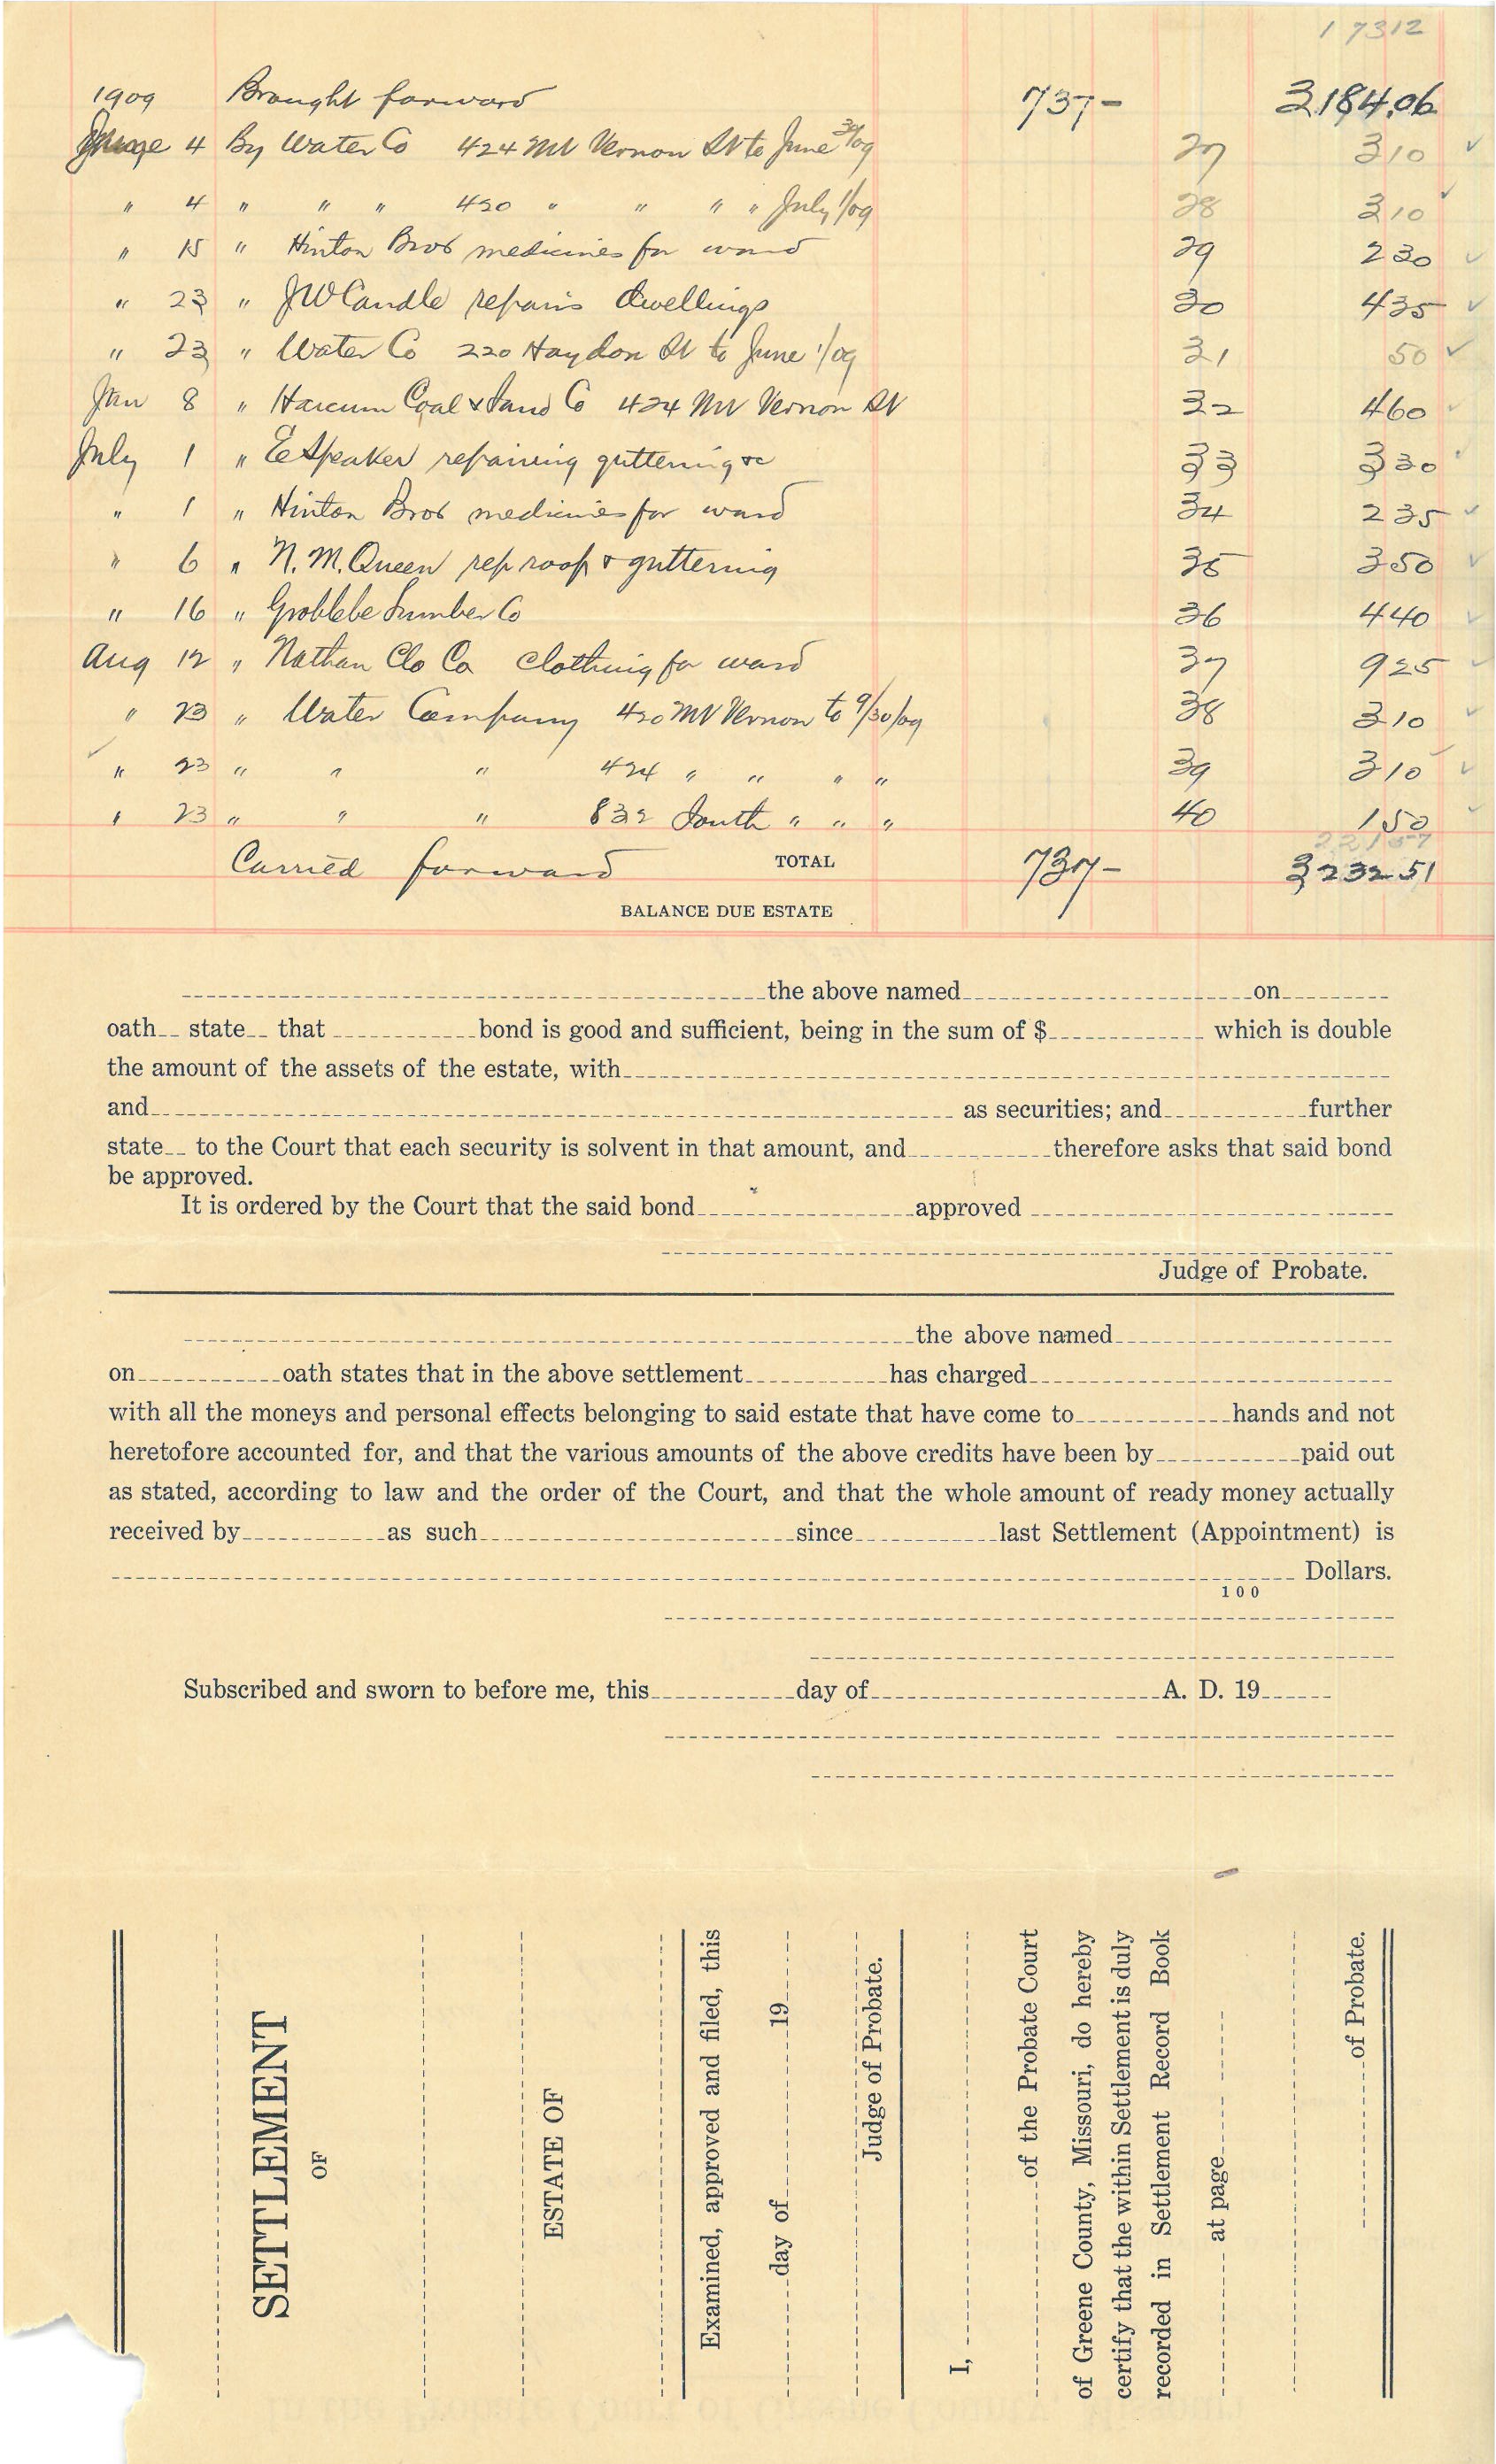 17312
1909 Brought forward 737- 3184.06
June 4 By Water Co 424 Mt Vernon St to June 30/09 27 310 ✓
" 4 " " " 420 " " " " July 1/09 28 310 ✓
" 15 " Hinton Bros medicines for ward 29 230 ✓
" 23 " J W Candle repairs dwellings 30 435 ✓
" 23 " Water Co 220 Haydon St to June 1/09 31 50 ✓
Jan 8 " Harcum Coal & Sand Co 424 Mt Vernon St 32 460 ✓
July 1 " E Speaker repairing guttering &c 33 330 ✓
" 1 " Hinton Bros medicines for ward 34 235 ✓
" 6 " N. M. Queen rep roof & guttering 35 350 ✓
" 16 " Lumber Co 36 440 ✓
Aug 12 " Nathan Clo Co clothing for ward 37 925 ✓
" 23 " Water Company 420 Mt Vernon to 9/30/09 38 310 ✓
✓ " 23 " " " 424 " " " " 39 310 ✓
" 23 " " " 832 South " " " 40 150 ✓
Carried forward TOTAL 737- 3232 51
BALANCE DUE ESTATE
the above named on
oath state that bond is good and sufficient, being in the sum of $ which is double
the amount of the assets of the estate, with
and as securities; and further
state to the Court that each security is solvent in that amount, and therefore asks that said bond
be approved.
It is ordered by the Court that the said bond approved
Judge of Probate.
the above named
on oath states that in the above settlement has charged
with all the moneys and personal effects belonging to said estate that have come to hands and not
heretofore accounted for, and that the various amounts of the above credits have been by paid out
as stated, according to law and the order of the Court, and that the whole amount of ready money actually
received by as such since last Settlement (Appointment) is
Dollars.
100
Subscribed and sworn to before me, this day of A. D. 19
SETTLEMENT
OF
ESTATE OF
Examined, approved and filed, this
day of 19
Judge of Probate.
I,
of the Probate Court
of Greene County, Missouri, do hereby
certify that the within Settlement is duly
recorded in Settlement Record Book
at page
of Probate.